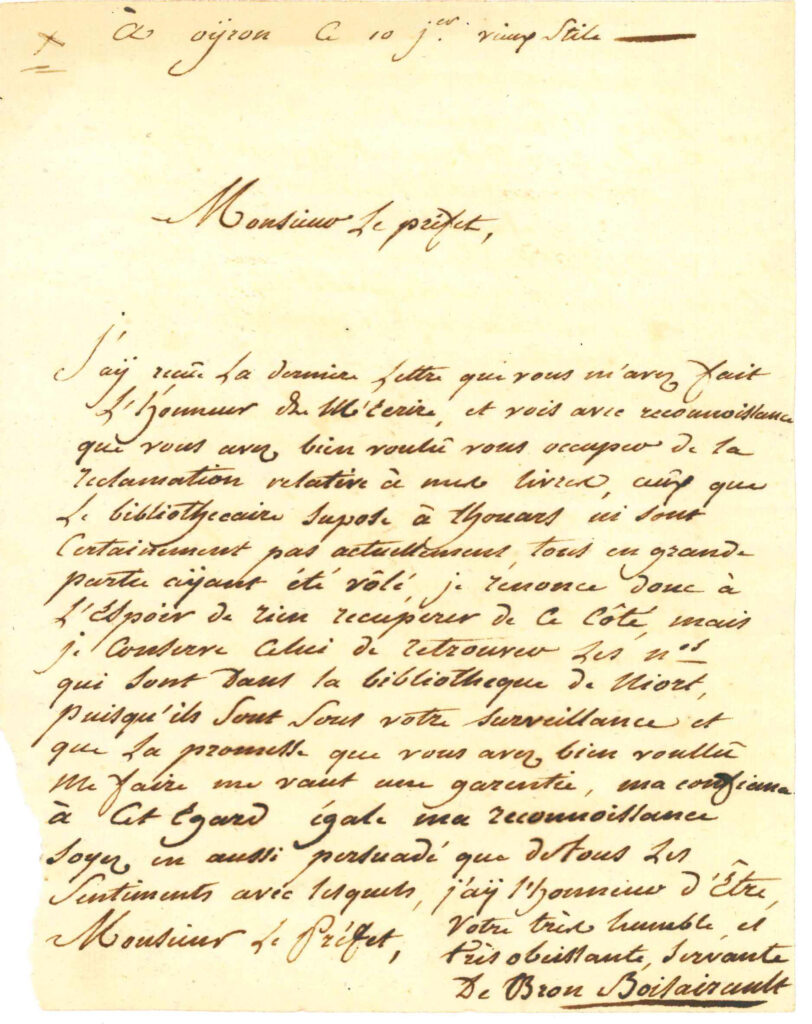 à oÿron ce 10 j.er vieux stile
Monsieur Le préfet,
J'aÿ recüe La derniere Lettre que vous m'avez fait
L'honneur de M'Ecrire, et vois avec reconnoissance
que vous avez bien voulu vous occuper de la
reclamation relative à mes livres, ceux que
Le bibliothecaire supose à thouars ni sont
Certainement pas actuellement, tous en grande
partie aÿant été volé, je renonce donc à
L'Espoir de rien recuperer de ce côté, mais
je Conserve Celui de retrouver Les nos
qui sont dans la bibliotheque de Niort,
puisqu'ils sont sous votre surveillance et
que La promesse que vous avez bien voullu
me faire me vaut une garentie, ma confiance
à Cet Egard égale ma reconnoissance
soyez en aussi persuadé que de tous Les
sentiments avec lesquels, j'aÿ l'honneur d'Être,
Monsieur Le Préfet,
votre très humble, et
très obeissante, servante
De Bron Boisairault